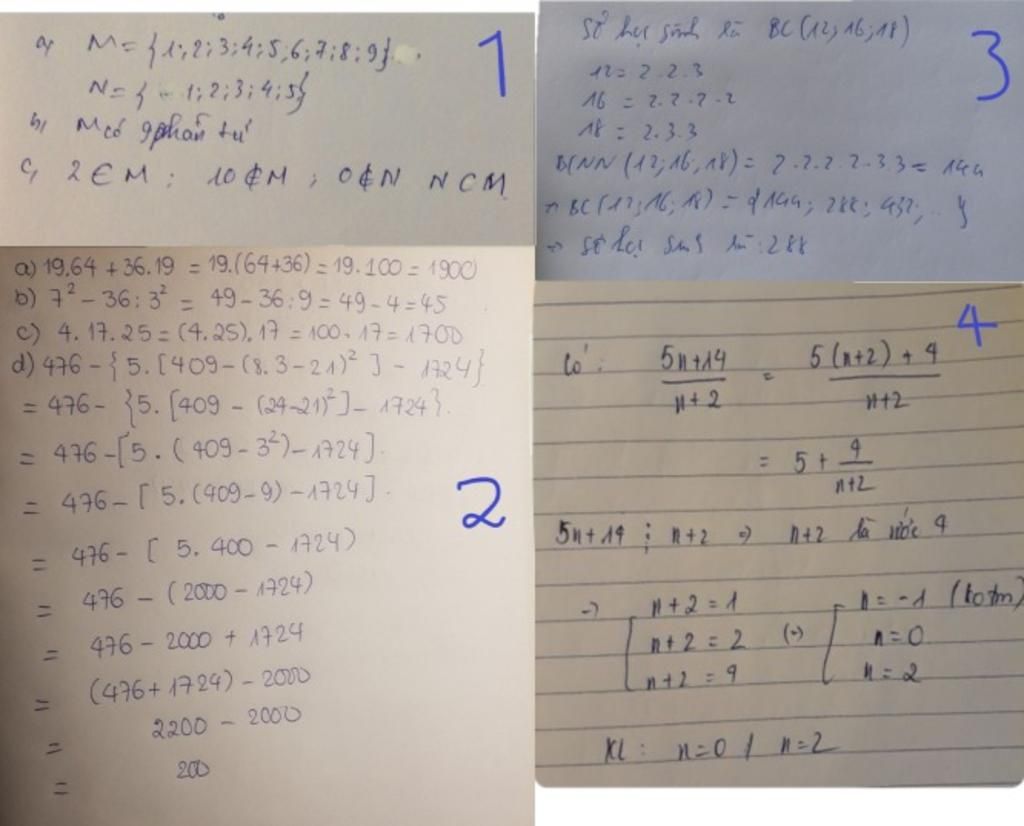 1
a, M = {1;2;3;4;5;6;7;8;9}.
N = { 1;2;3;4;5}
b, M có 9 phần tử
c, 2 ∈ M ; 10 ∉ M ; 0 ∉ N N ⊂ M
2
a) 19.64 + 36.19 = 19.(64+36) = 19.100 = 1900
b) 7² - 36 : 3² = 49 - 36 : 9 = 49 - 4 = 45
c) 4. 17. 25 = (4.25). 17 = 100 . 17 = 1700
d) 476 - {5. [409 - (8.3 - 21)² ] - 1724}
= 476 - {5. [409 - (24-21)²] - 1724}.
= 476 - [5. ( 409 - 3²) - 1724].
= 476 - [ 5.(409-9) - 1724].
= 476 - [ 5. 400 - 1724)
= 476 - (2000 - 1724)
= 476 - 2000 + 1724
= (476+1724) - 2000
= 2200 - 2000
= 200
3
Số học sinh là BC(12;16;18)
12 = 2.2.3
16 = 2.2.2.2
18 = 2.3.3
BCNN(12;16;18) = 2.2.2.2.3.3 = 144
BC(12;16;18) = {144; 288; 432; ..}
=> Số học sinh là : 288
4
Có : 5n+14 / n+2 = 5(n+2) + 4 / n+2
= 5 + 4 / n+2
5n+14 ⋮ n+2 => n+2 là ước 4
-> [ n+2 = 1 (->) [ n = -1 (kotm)
n+2 = 2 n = 0
n+2 = 4 n = 2
KL : n=0 / n=2